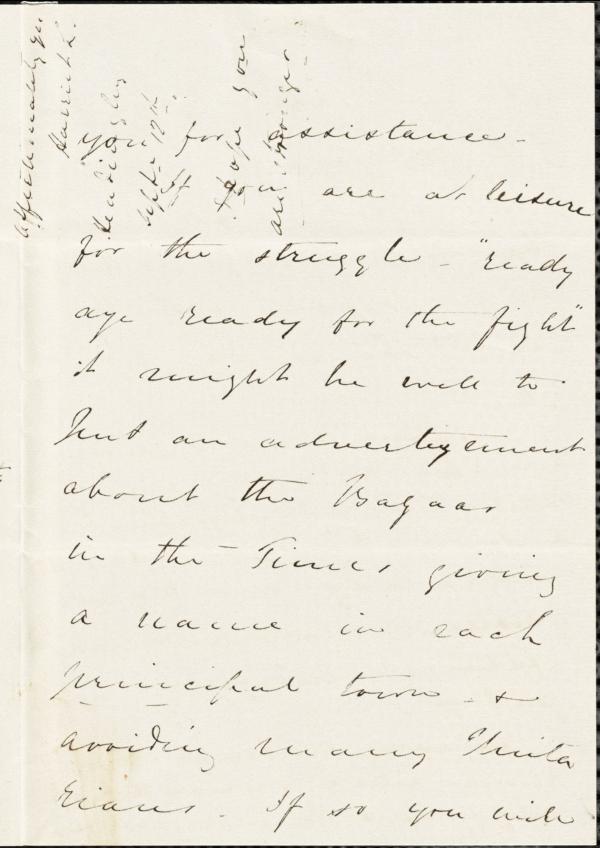 you for assistance.
If you are at leisure
for the struggle - "ready
aye ready for the fight"
it might be well to
put an advertizement
about the Bazaar
in the Times giving
a name in each
principal town &
avoiding many Unita
rians. If so you will
I hope you
are stronger
Affectionately yrs
Harriet L.
Headingley
Septr 12th.